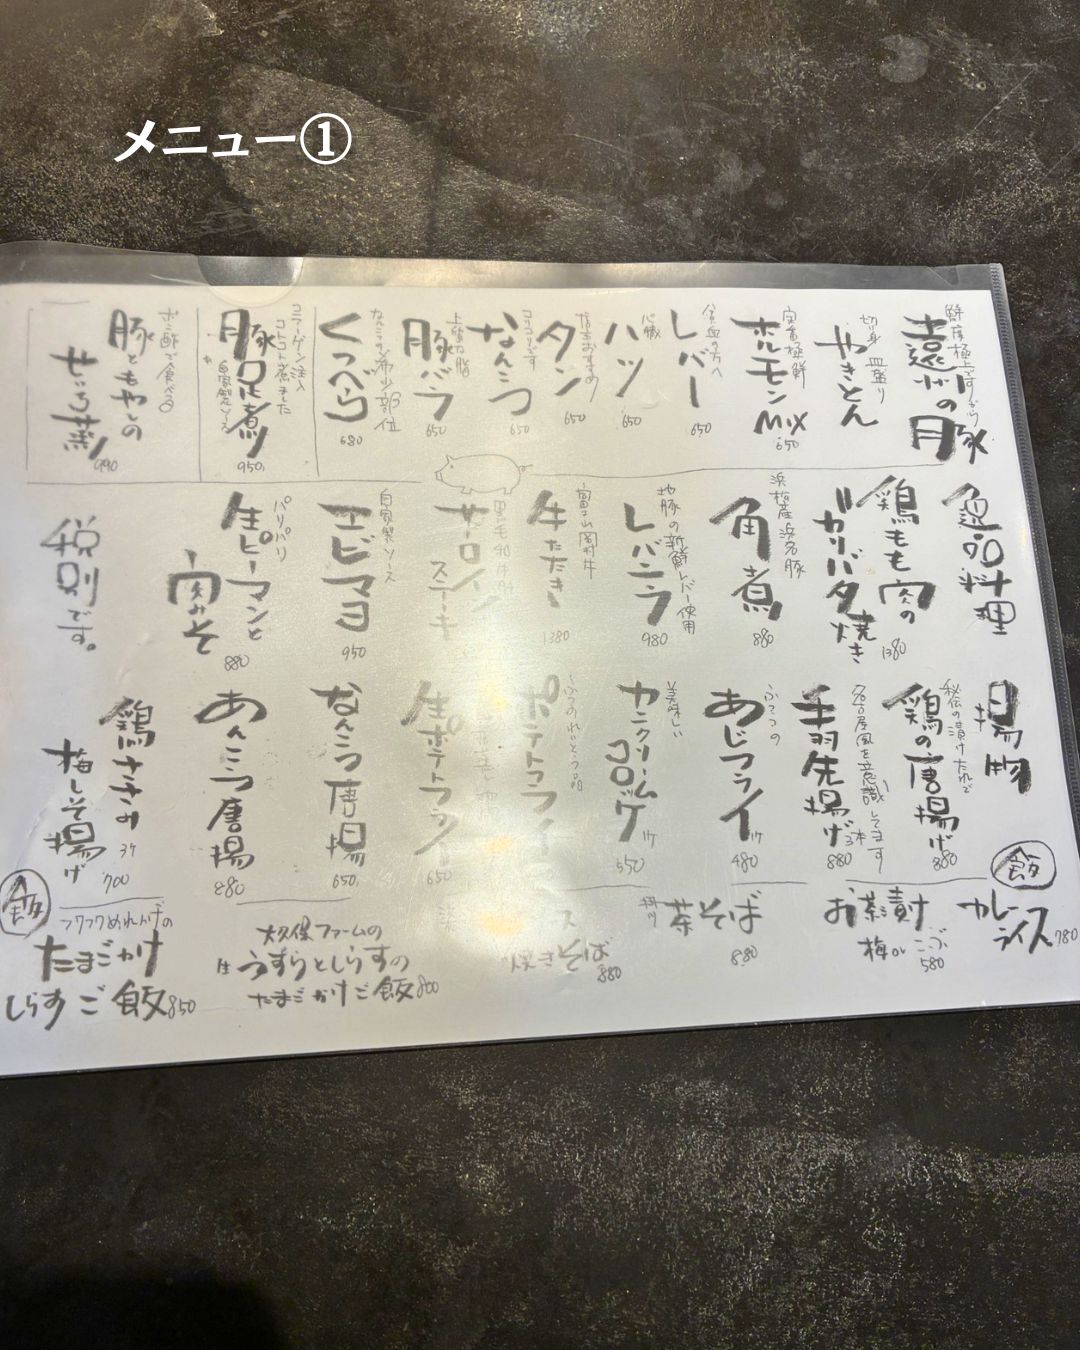 メニュー①
鮮度極上ですから
遠州の豚
切り身 皿盛り
やきとん
定番極鮮
ホルモン
MIX
650
貧血の方へ
レバー
650
心臓
ハツ
650
店主おすすめ
タン
650
コリコリです
なんこつ
650
上質な脂
豚バラ
650
なんこつの希少部位
くつべら
680
コラーゲン注入
コトコト煮ました
豚足煮
自家製ソース
950
ポン酢で食べる
豚ともやしの
せいろ蒸し
990
逸品料理
鶏もも肉の
ガリバタ焼き
1380
浜松産浜名豚
角煮
880
地豚の新鮮レバー使用
レバニラ
980
富士山岡村牛
牛たたき
1380
黒毛和牛
サーロイン
ステーキ
自家製ソース
エビマヨ
950
パリパリ
生ピーマンと
肉みそ
880
税別です。
揚物
秘伝の漬けたれで
鶏の唐揚げ
880
名古屋風を意識してます
手羽先揚げ
3本
880
ふてっつの
あじフライ
1ケ
480
美味しい
カニクリーム
コロッケ
1ケ
550
ポテトフライ
生ポテトフライ
650
なんこつ唐揚
650
あんこう唐揚
880
鶏ササミの
梅しそ揚げ
3ケ
700
飯
カレー
ライス
780
お茶漬け
梅orこぶ
580
茶そば
880
焼きそば
880
大久保ファームの
生うずらとしらすの
たまごかけご飯
800
飯
フワフワめれんげの
たまごかけ
しらすご飯
850